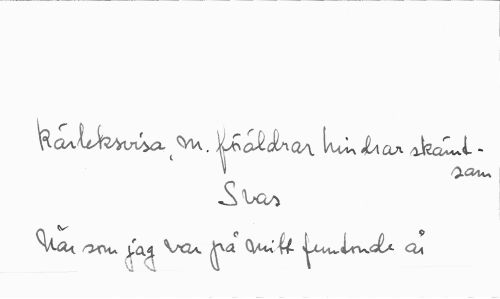 Kärleksvisa, m. föräldrar hindrar skämt-
sam
Svas
När som jag var på mitt femtonde år